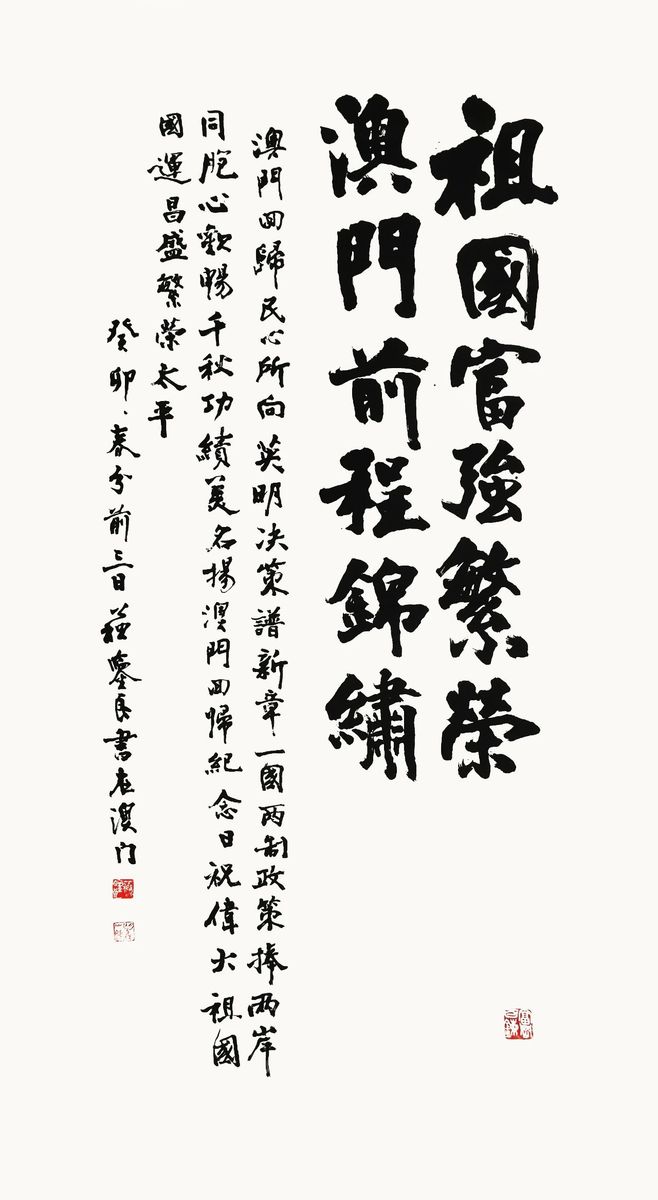 祖國富強繁榮
澳門前程錦繡
澳門回歸民心所向英明决策譜新章一國两制政策捧兩岸
同胞心歡暢千秋功績美名揚澳門回歸紀念日祝偉大祖國
國運昌盛繁榮太平
癸卯春分前三日蘇鑒良書在澳门